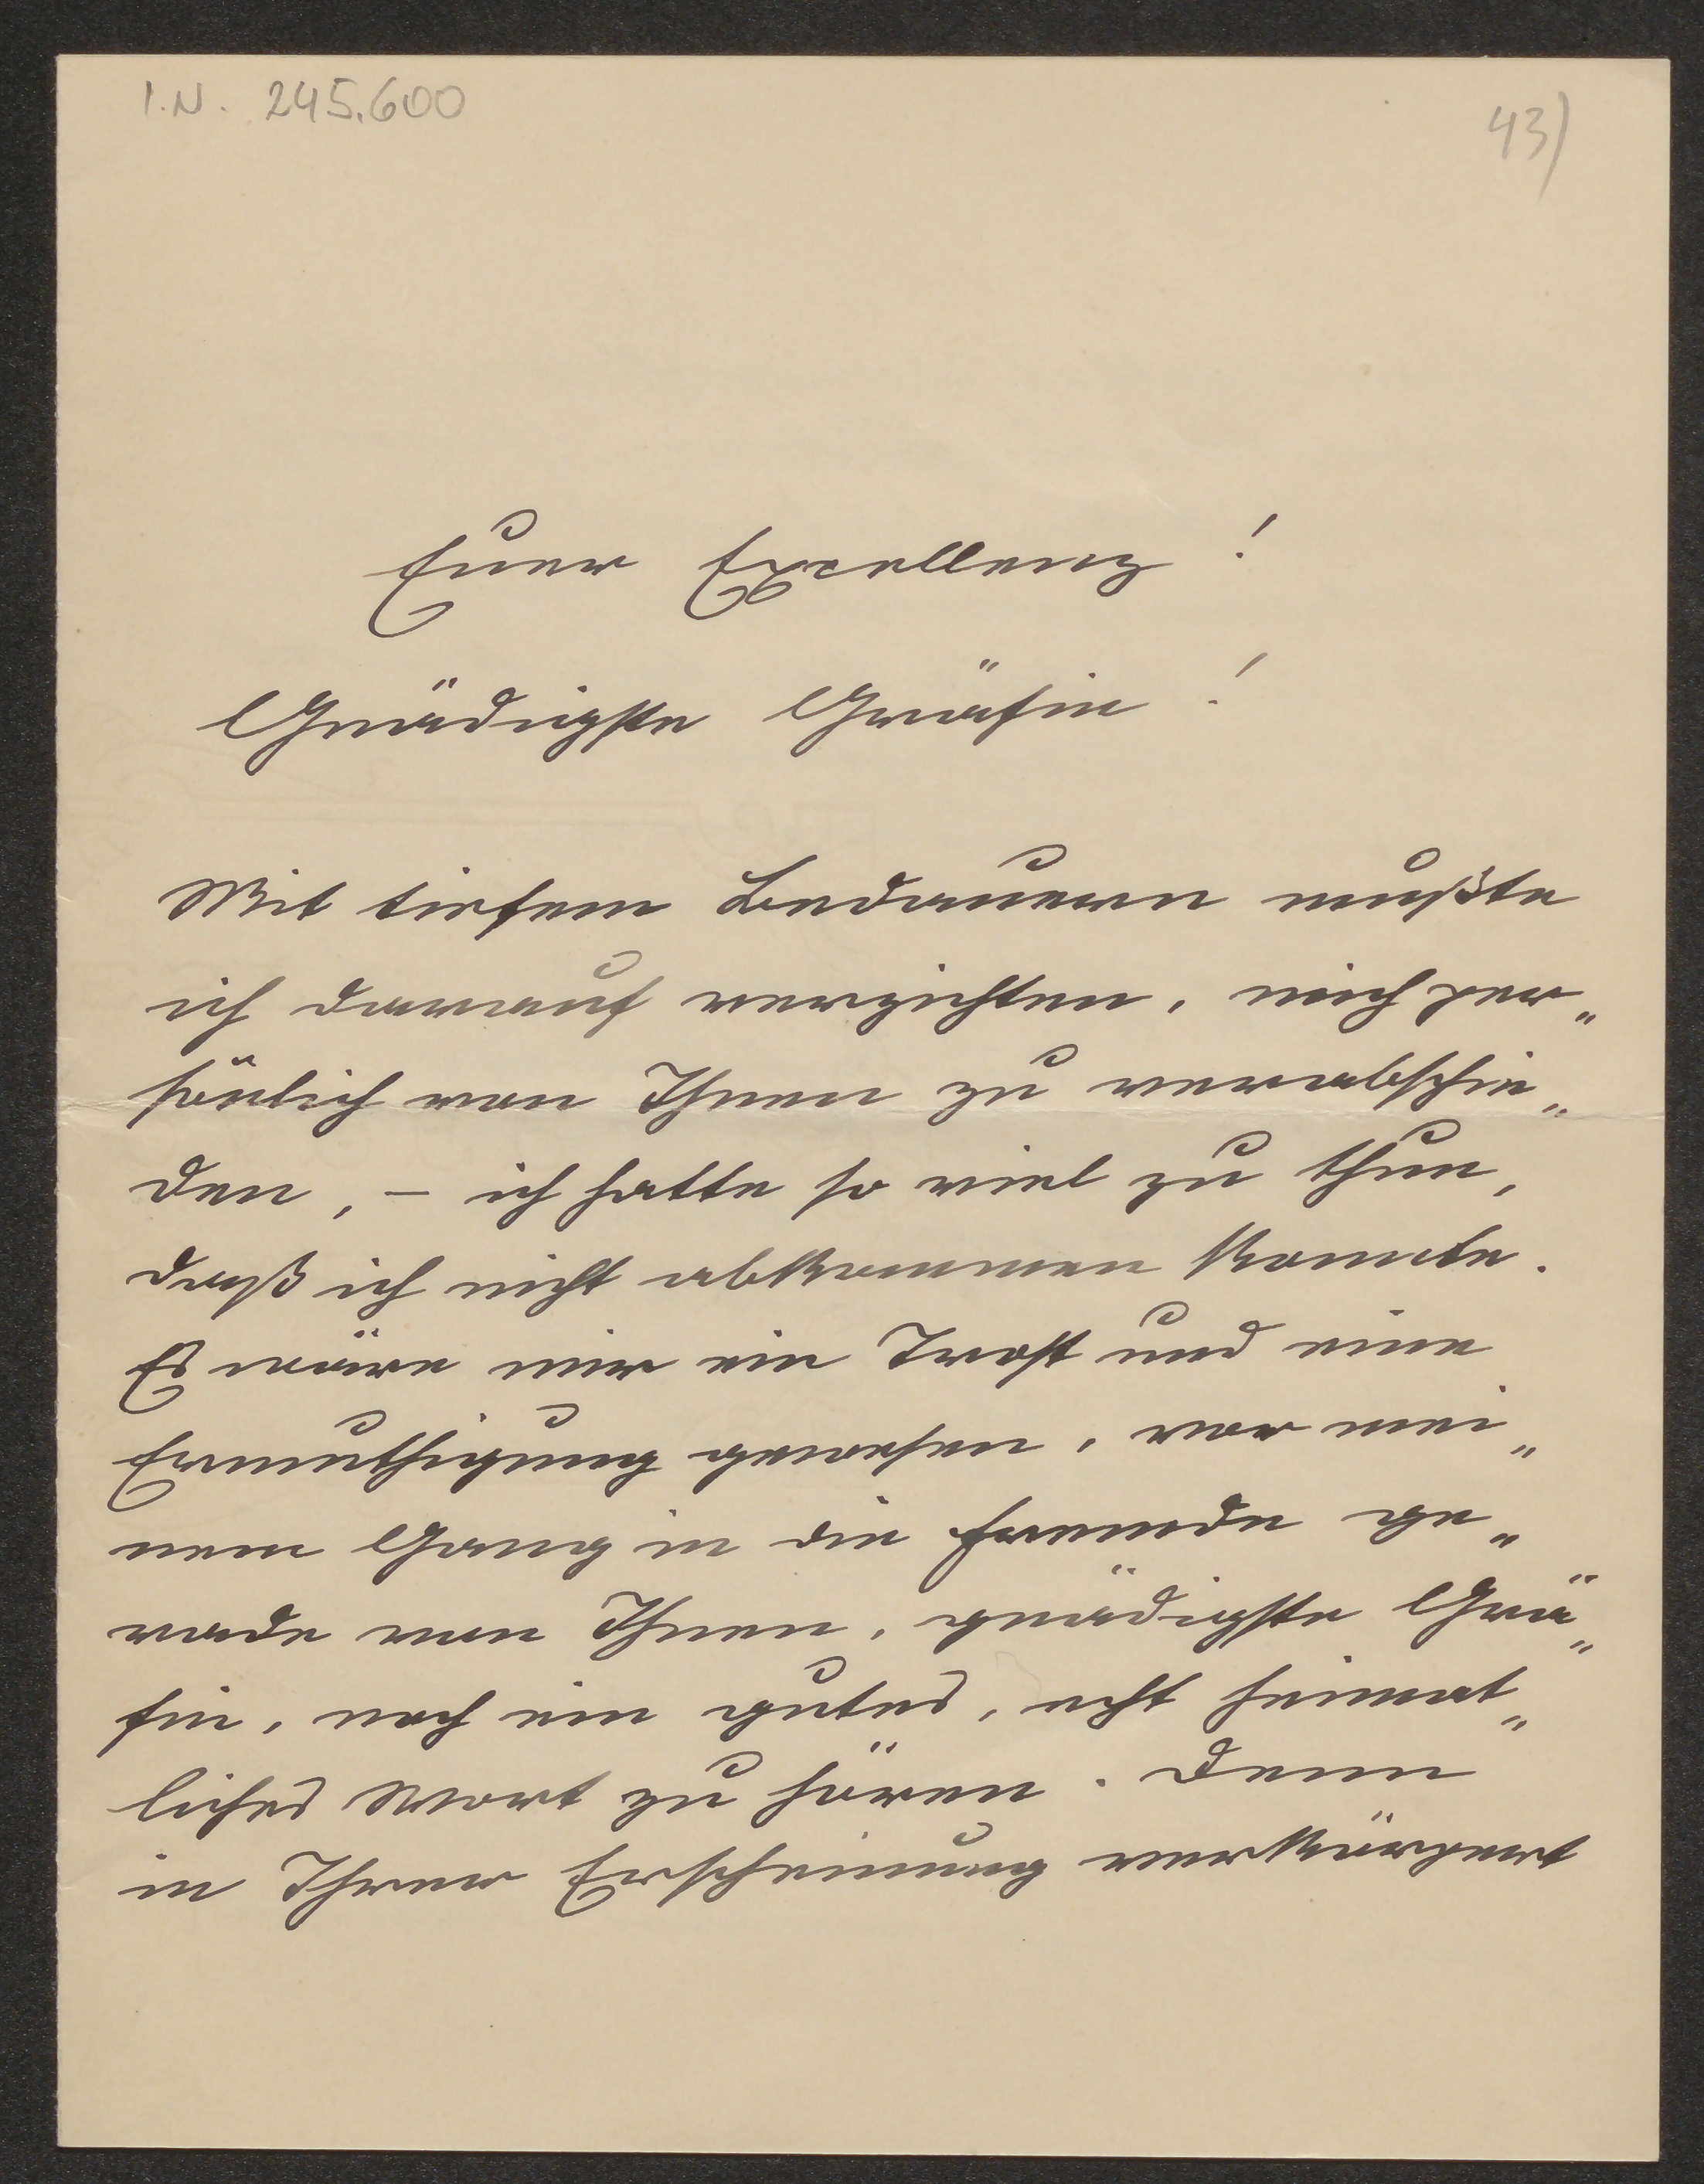 I.N. 245.600
43)
Euer Excellenz!
Gnädigste Gräfin!
Mit tiefem Bedauern mußte
ich darauf verzichten, mich per„
sönlich von Ihnen zu verabschie„
den, – ich hatte so viel zu thun,
daß ich nicht abkommen konnte.
Es wäre mir ein Trost und eine
Ermuthigung gewesen, vor mei„
nem Gang in die Fremde ge„
rade von Ihnen, gnädigste Grä„
fin, noch ein gutes, echt heimat„
liches Wort zu hören. Denn
in Ihrer Erscheinung verkörpert